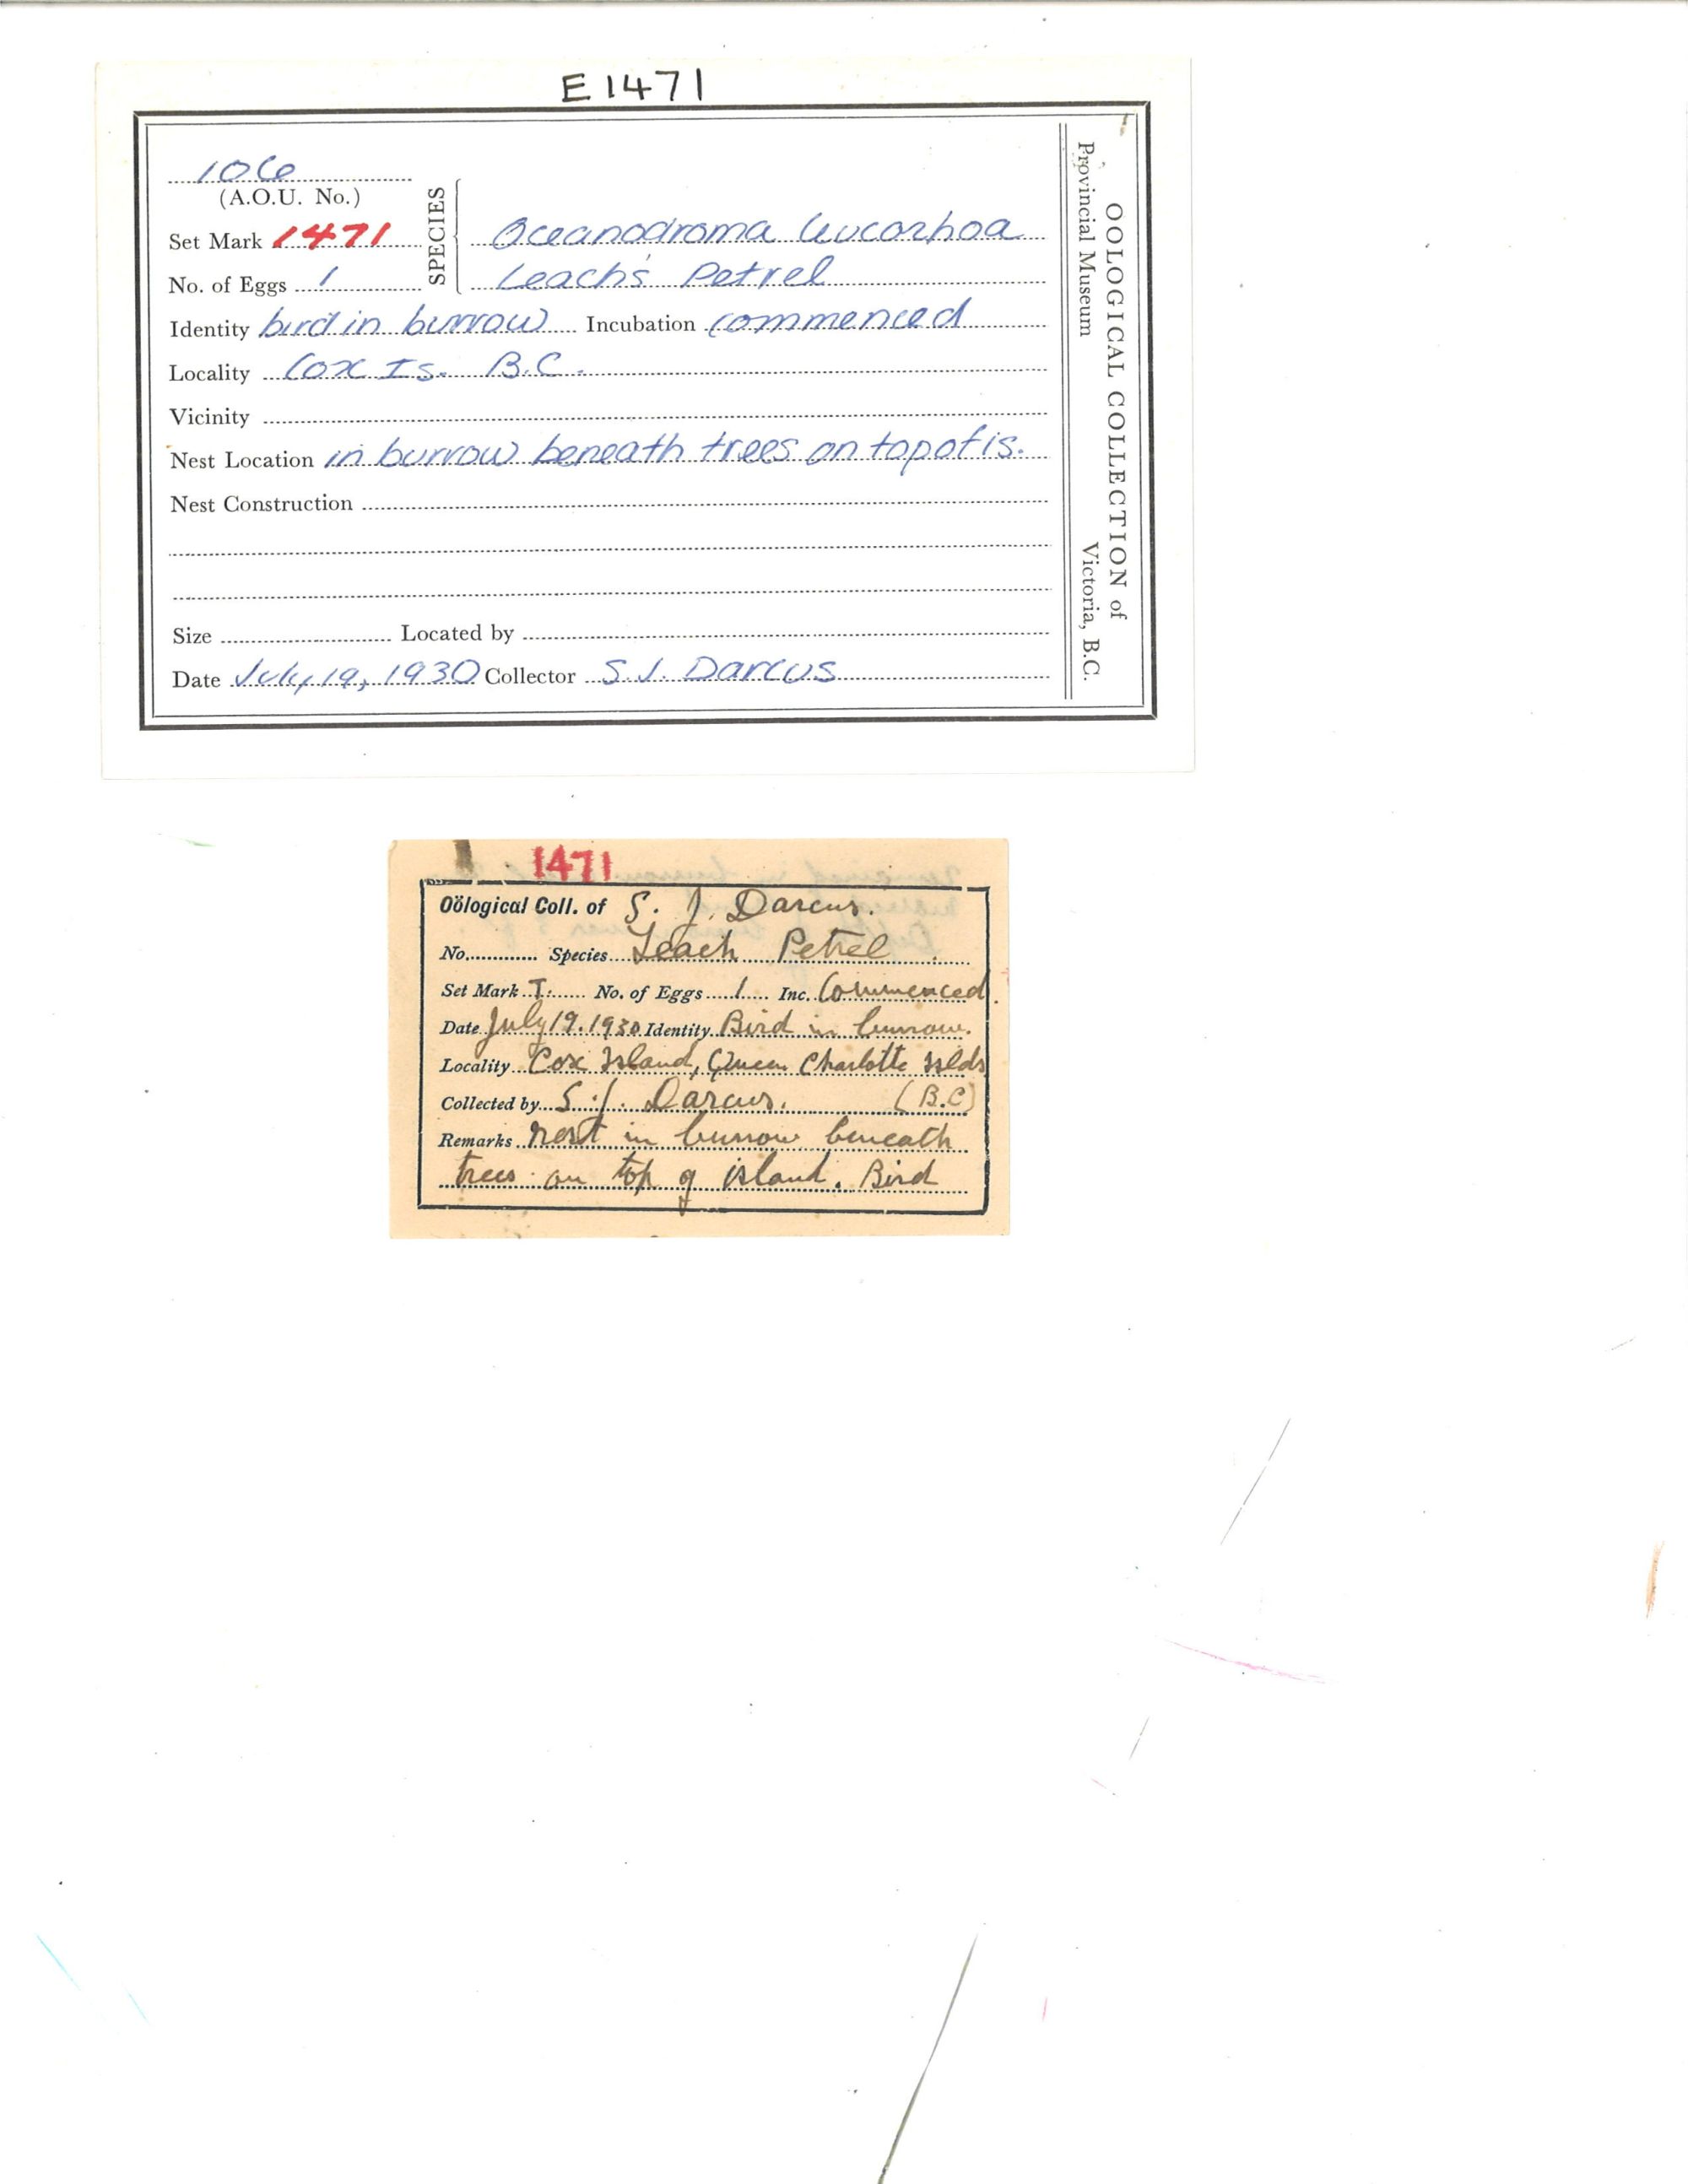 E1471
106
(A.O.U. No.)
Set Mark 1471
No. of Eggs 1
SPECIES
Oceanodroma leucorhoa
Leach's Petrel
Identity bird in burrow Incubation commenced
Locality Cox Is. B.C.
Vicinity
Nest Location in burrow beneath trees on top of is.
Nest Construction
Size Located by
Date July 19, 1930 Collector S.J. Darcus
OOLOGICAL COLLECTION of
Provincial Museum Victoria, B.C.
1471
Oölogical Coll. of S. J. Darcus.
No. Species Leach Petrel
Set Mark I. No. of Eggs 1 Inc. Commenced.
Date July 19. 1930 Identity Bird in burrow.
Locality Cox Island, Queen Charlotte Islds
Collected by S.J. Darcus. (B.C)
Remarks nest in burrow beneath
trees on top of island. Bird